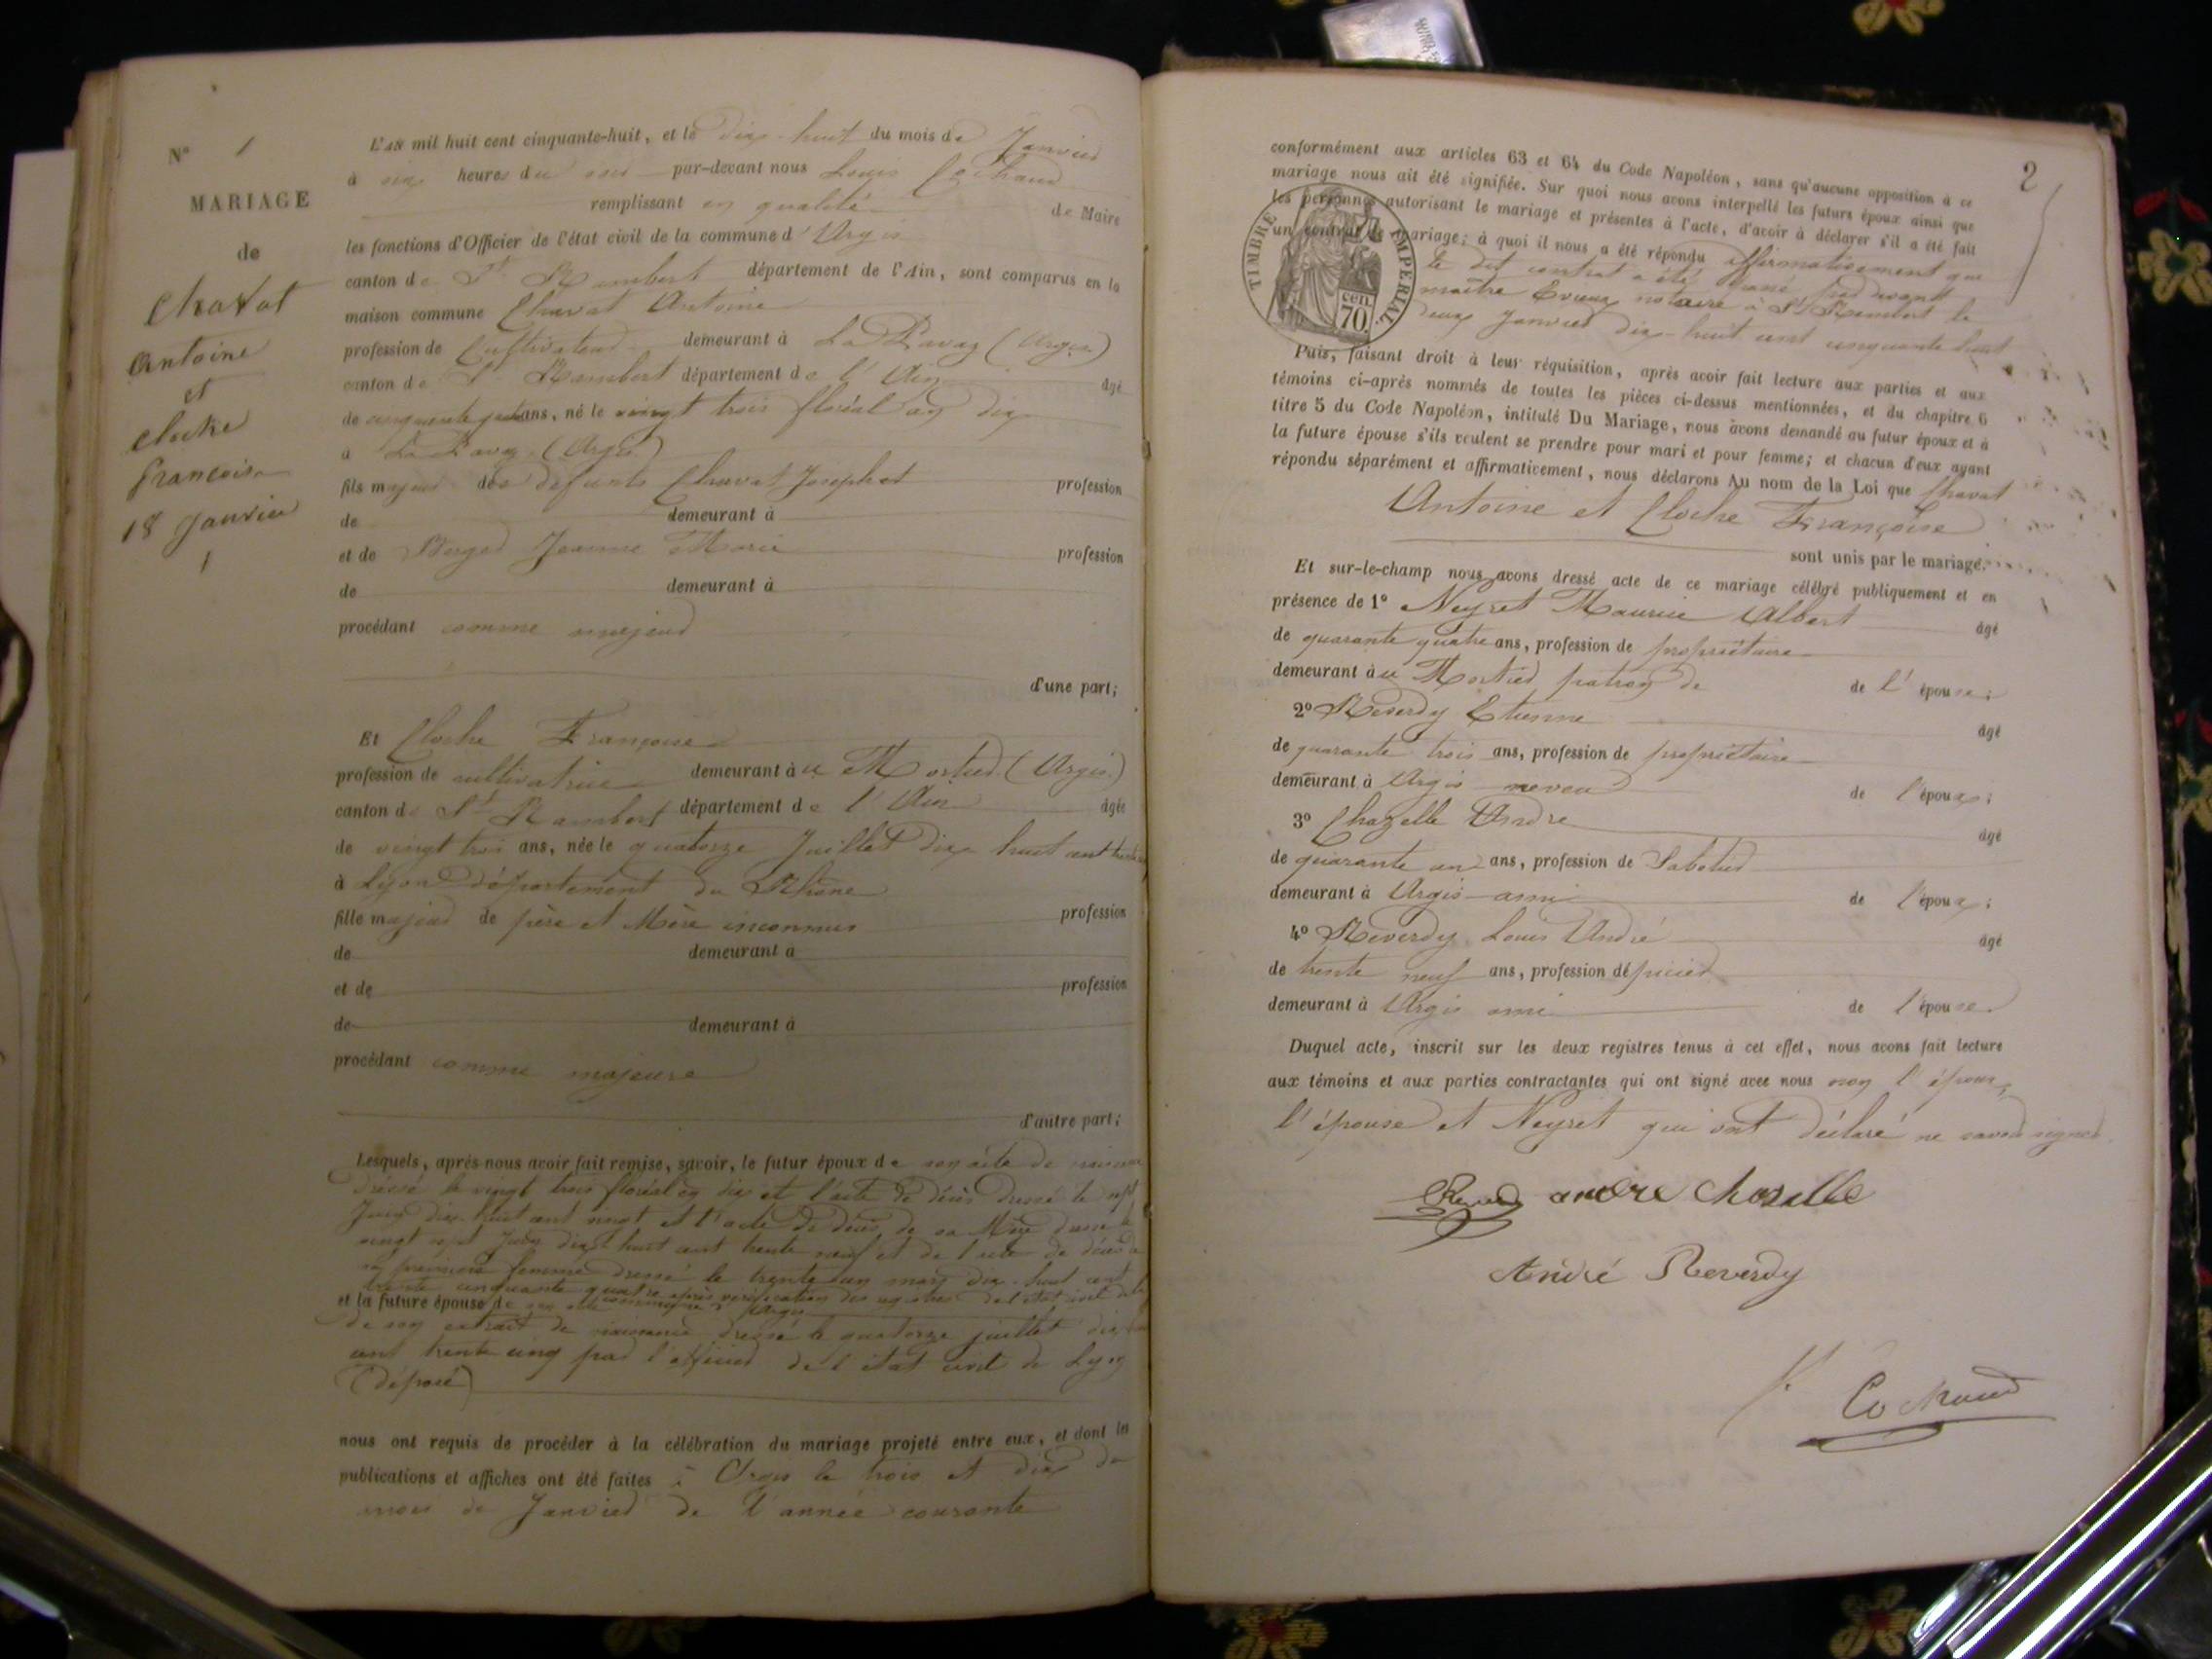 N° 1
MARIAGE
de
Chavat
Antoine
et
Cloche
Françoise
18 Janvier
1
L'an mil huit cent cinquante-huit, et le dix-huit du mois de Janvier
à six heures du soir par-devant nous Louis Cochaud
remplissant en qualité de Maire
les fonctions d'Officier de l'état civil de la commune d'Argis
canton de St Rambert département de l'Ain, sont comparus en la
maison commune Chavat Antoine
profession de Cultivateur demeurant à La Pavaz (Argis)
canton de St Rambert département de l'Ain âgé
de cinquante ans, né le vingt trois floréal an dix
à La Pavaz (Argis)
fils majeur des défunts Chavat Joseph et profession
de demeurant à
et de Berger Jeanne Marie profession
de demeurant à
procédant comme majeur
d'une part;
Et Cloche Françoise
profession de cultivatrice demeurant à u Mortier (Argis)
canton de St Rambert département de l'Ain âgée
de vingt trois ans, née le quatorze Juillet dix huit cent
à Lyon département du Rhône
fille majeur de père et Mère inconnus profession
de demeurant à
et de profession
de demeurant à
procédant comme majeure
d'autre part;
Lesquels, après nous avoir fait remise, savoir, le futur époux de son acte de
dressé le vingt trois floréal an dix et l'acte de décès dressé le
Juin dix-huit cent vingt et l'acte de décès de sa Mère dressé le
vingt sept Juin dix-huit cent trente neuf et de l'acte de décès de
sa première femme dressé le trente un mars dix-huit cent
cinquante quatre après vérification des registres de l'état civil de la
et la future épouse de commune d'Argis
de son extrait de naissance dressé le quatorze juillet dix
cent trente cinq par l'officier de l'état civil de Lyon
(déposé)
nous ont requis de procéder à la célébration du mariage projeté entre eux, et dont les
publications et affiches ont été faites à Argis le trois et dix du
mois de Janvier de l'année courante
2
conformément aux articles 63 et 64 du Code Napoléon, sans qu'aucune opposition à ce
mariage nous ait été signifiée. Sur quoi nous avons interpellé les futurs époux ainsi que
les personnes autorisant le mariage et présentes à l'acte, d'avoir à déclarer s'il a été fait
un contrat de mariage; à quoi il nous a été répondu affirmativement que
le dit contrat a été passé par devant
maître notaire à St Rambert le
deux Janvier dix-huit cent cinquante huit
TIMBRE IMPERIAL
cen. 70.
Puis, faisant droit à leur réquisition, après avoir fait lecture aux parties et aux
témoins ci-après nommés de toutes les pièces ci-dessus mentionnées, et du chapitre 6
titre 5 du Code Napoléon, intitulé Du Mariage, nous avons demandé au futur époux et à
la future épouse s'ils veulent se prendre pour mari et pour femme; et chacun d'eux ayant
répondu séparément et affirmativement, nous déclarons Au nom de la Loi que Chavat
Antoine et Cloche Françoise
sont unis par le mariage.
Et sur-le-champ nous avons dressé acte de ce mariage célébré publiquement et en
présence de 1° Neyret Maurice Albert âgé
de quarante quatre ans, profession de propriétaire
demeurant à u Mortier patron de de l'épouse;
2° Reverdy Etienne âgé
de quarante trois ans, profession de propriétaire
demeurant à Argis neveu de l'époux;
3° Chazelle André âgé
de quarante un ans, profession de Sabotier
demeurant à Argis ami de l'époux;
4° Reverdy Louis André âgé
de trente neuf ans, profession d'épicier
demeurant à Argis ami de l'épouse.
Duquel acte, inscrit sur les deux registres tenus à cet effet, nous avons fait lecture
aux témoins et aux parties contractantes qui ont signé avec nous non l'époux,
l'épouse et Neyret qui ont déclaré ne savoir signer
andre chazelle
André Reverdy
Cochaud